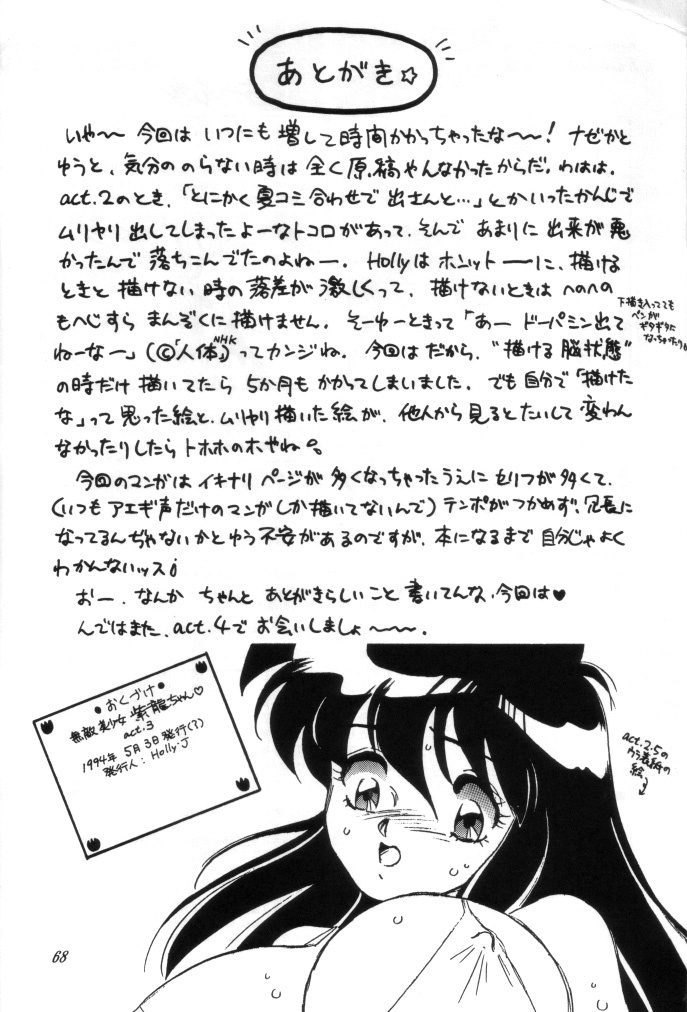 あとがき☆
いや〜〜 今回は いつにも 増して時間かかっちゃったな〜〜! ナゼかと
ゆうと、気分の のらない時は 全く原稿やんなかったからだ。わはは。
act.2のとき、「とにかく夏コミ合わせで 出さんと…」とかいったかんじで
ムリヤリ出してしまったよーなトコロがあって、そんで あまりに 出来が悪
かったんで 落ちこんでたのよねー。 Hollyは ホントーーに、描ける
ときと 描けない 時の落差が 激しくって、 描けないときは へのへの
もへじすら まんぞくに描けません。 そーゆーときって「あー ドーパミン出て
ねーなー」(©「人体」NHK)ってカンジね。 今回は だから、"描ける脳状態"
の時だけ 描いてたら 5か月も かかってしまいました。 でも自分で「描けた
な」って思った絵と、ムリヤリ描いた絵が、他人から見るとたいして 変わん
なかったりしたら トホホのホやね。
下描き入ってても
ペンが
ギタギタに
なっちゃったり
今回のマンガは イキナリ ページが 多くなっちゃったうえに セリフが多くて、
(いつも アエギ声だけのマンガしか描いてないんで) テンポがつかめず、冗長に
なってるんぢゃないかとゆう不安があるのですが、本になるまで 自分じゃよく
わかんないッス
おー、なんか ちゃんと あとがきらしいこと 書いてんな、今回は♥
んではまた、act.4で お会いしましょ〜〜〜。
●おくづけ●
無敵美少女 紫龍ちゃん♡
act.3
1994年 5月3日発行(?)
発行人:Holly.J
act.2.5の
ウラ表紙の
絵
68